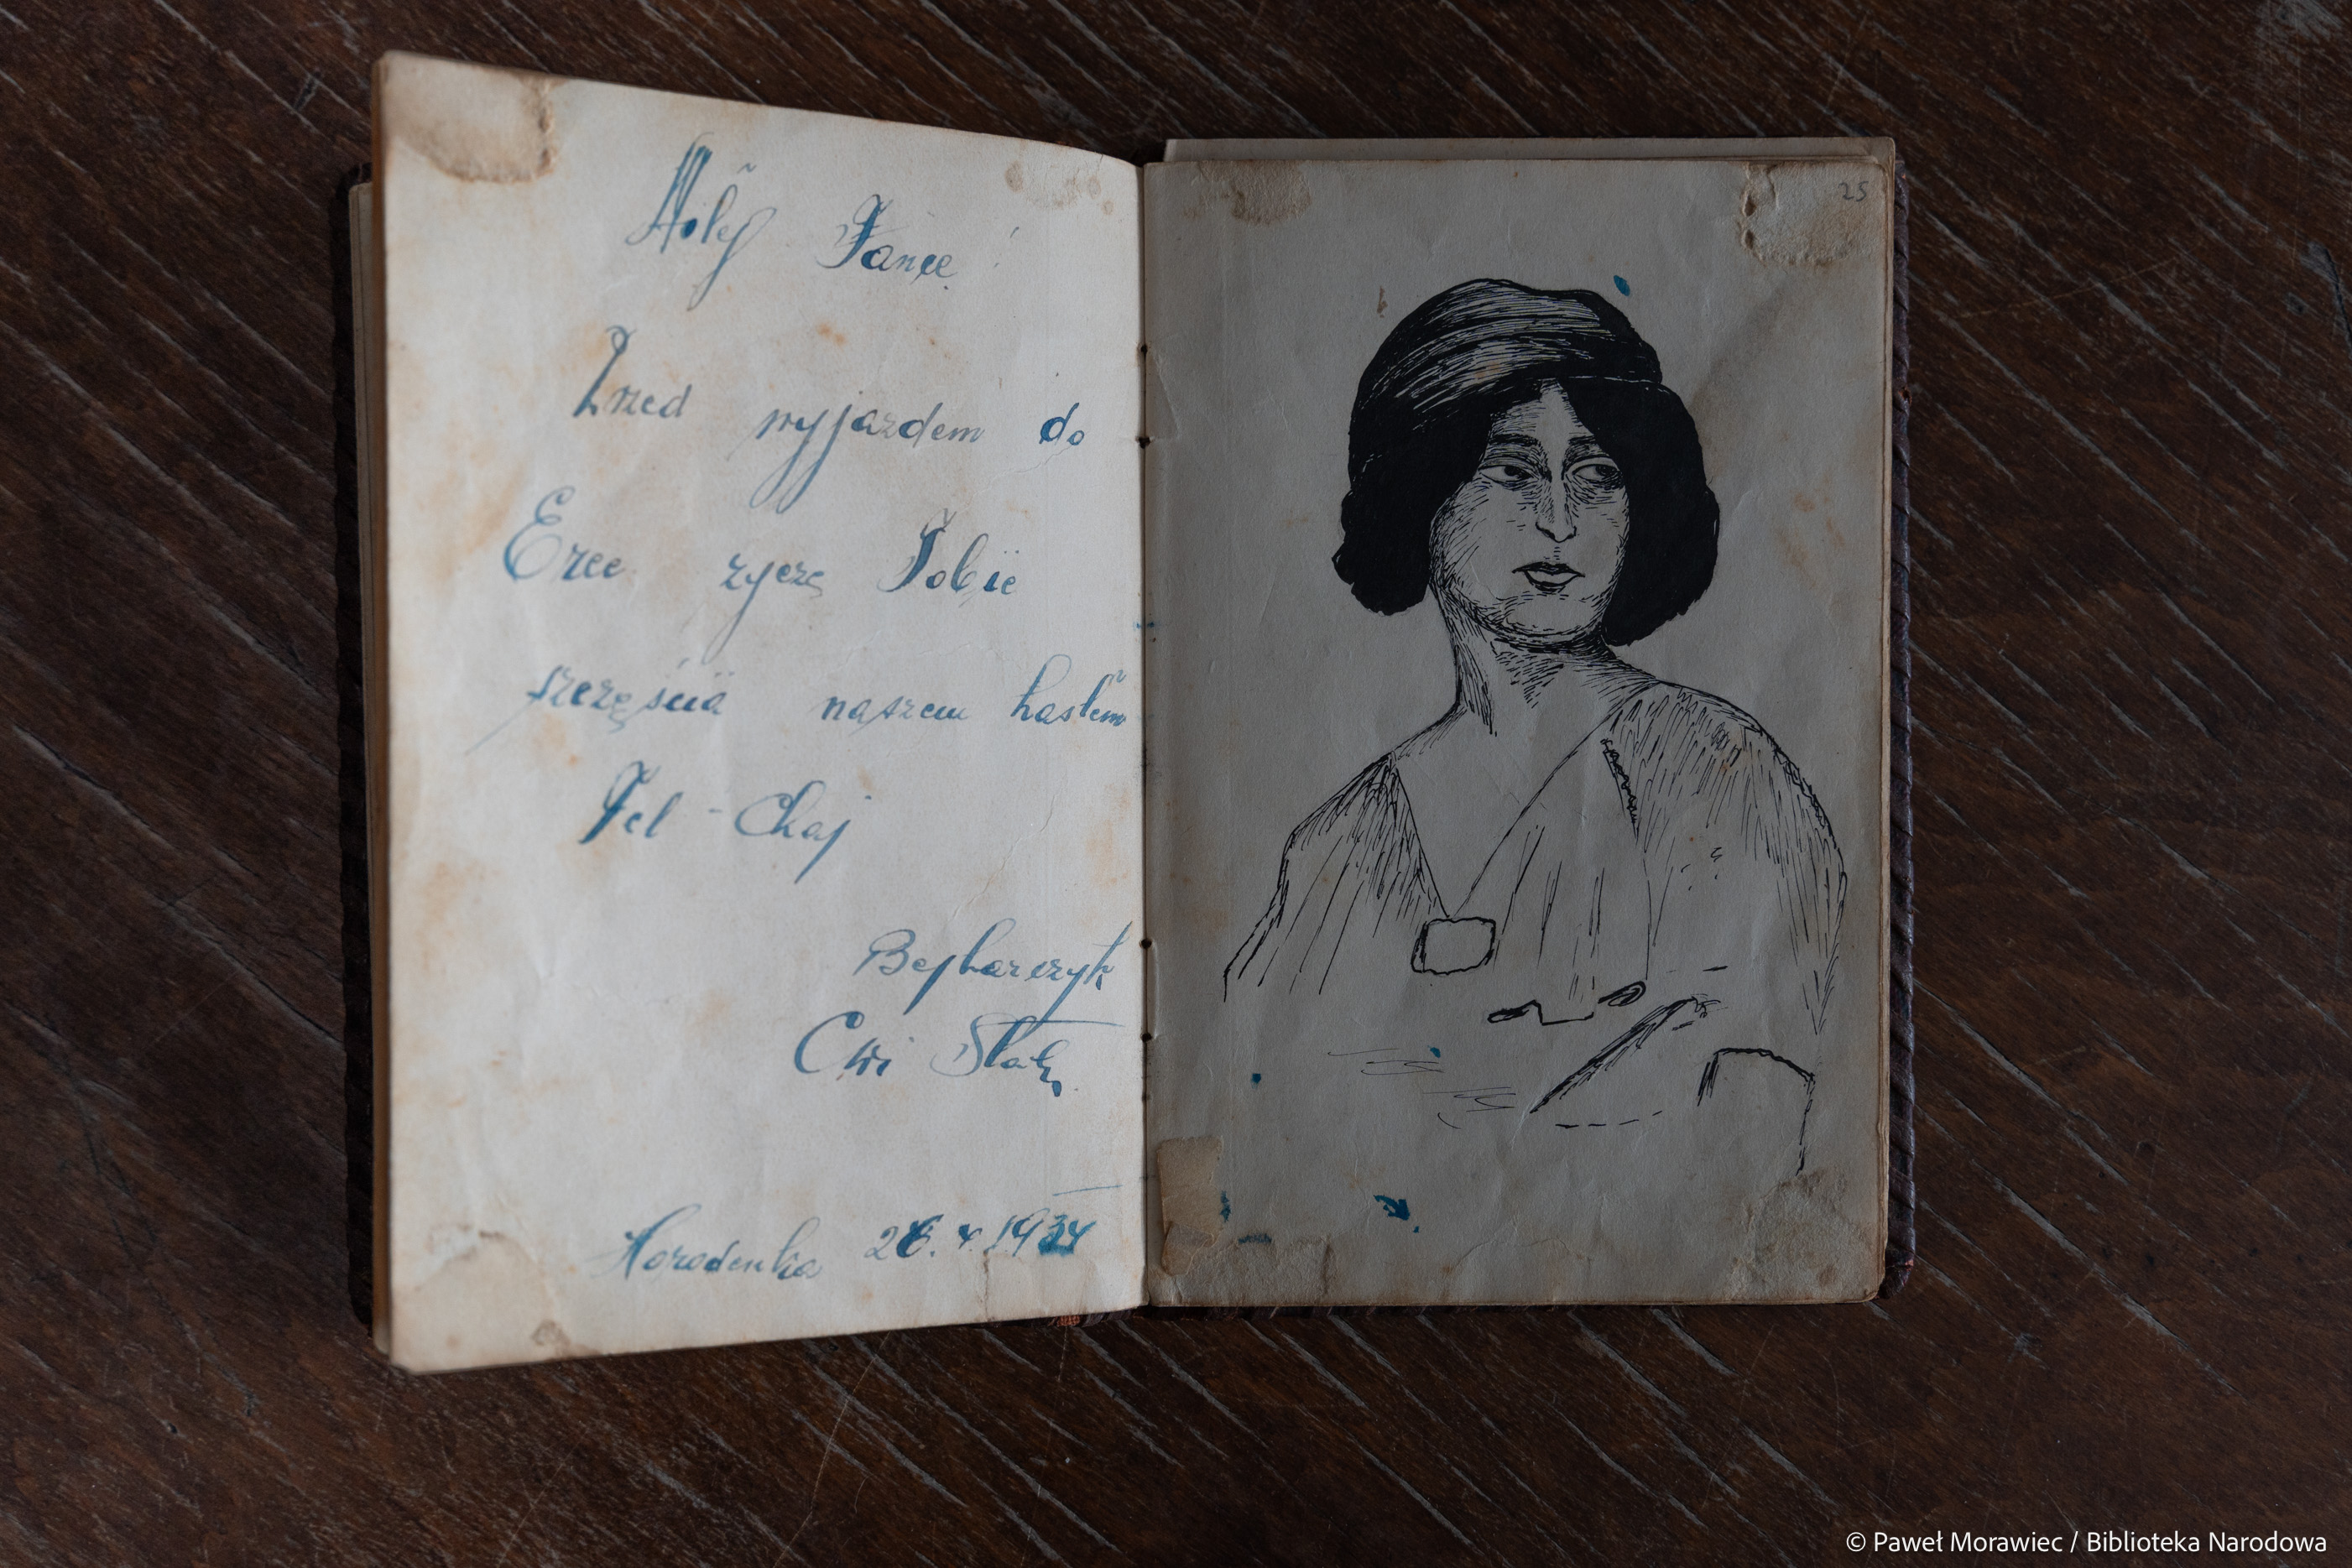 Miłej Fance!
Przed wyjazdem do
Erec życzę Tobie
szczęścia naszem hasłem
Tel - Chaj
Bejtarczyk
Cwi
Horodenka 26. V. 1934
25
© Paweł Morawiec / Biblioteka Narodowa